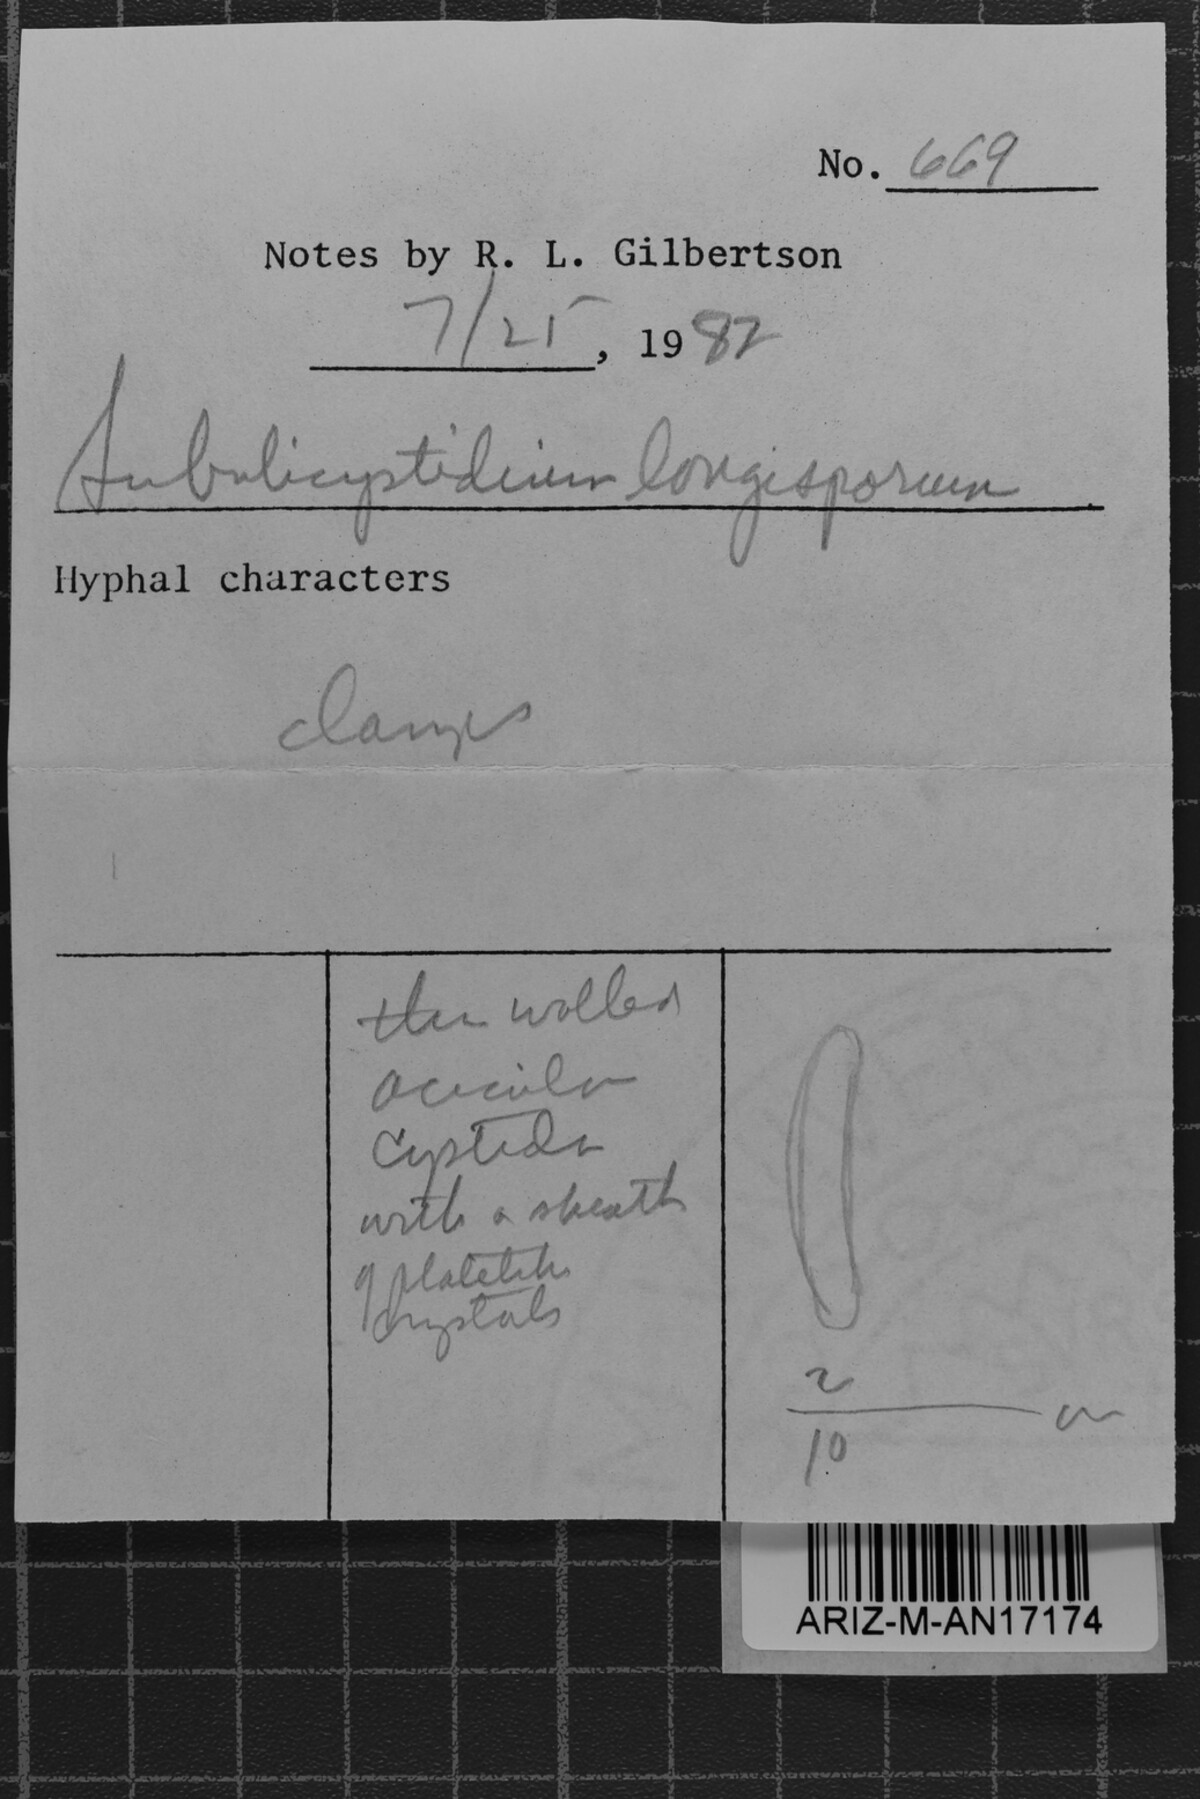 No. 669
Notes by R. L. Gilbertson
7/25, 1982
Subulicystidium longisporum
Hyphal characters
clamps
thin walled
acicular
cystidia
with a sheath
of platelike
crystals
2
10
ARIZ-M-AN17174